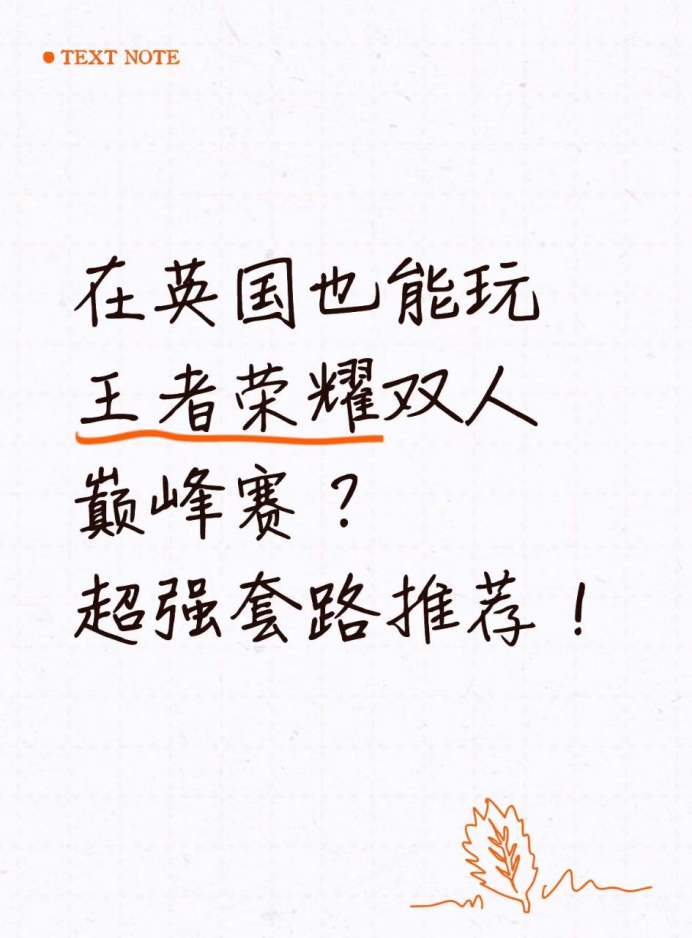 TEXT NOTE
在英国也能玩
王者荣耀双人
巅峰赛？
超强套路推荐！